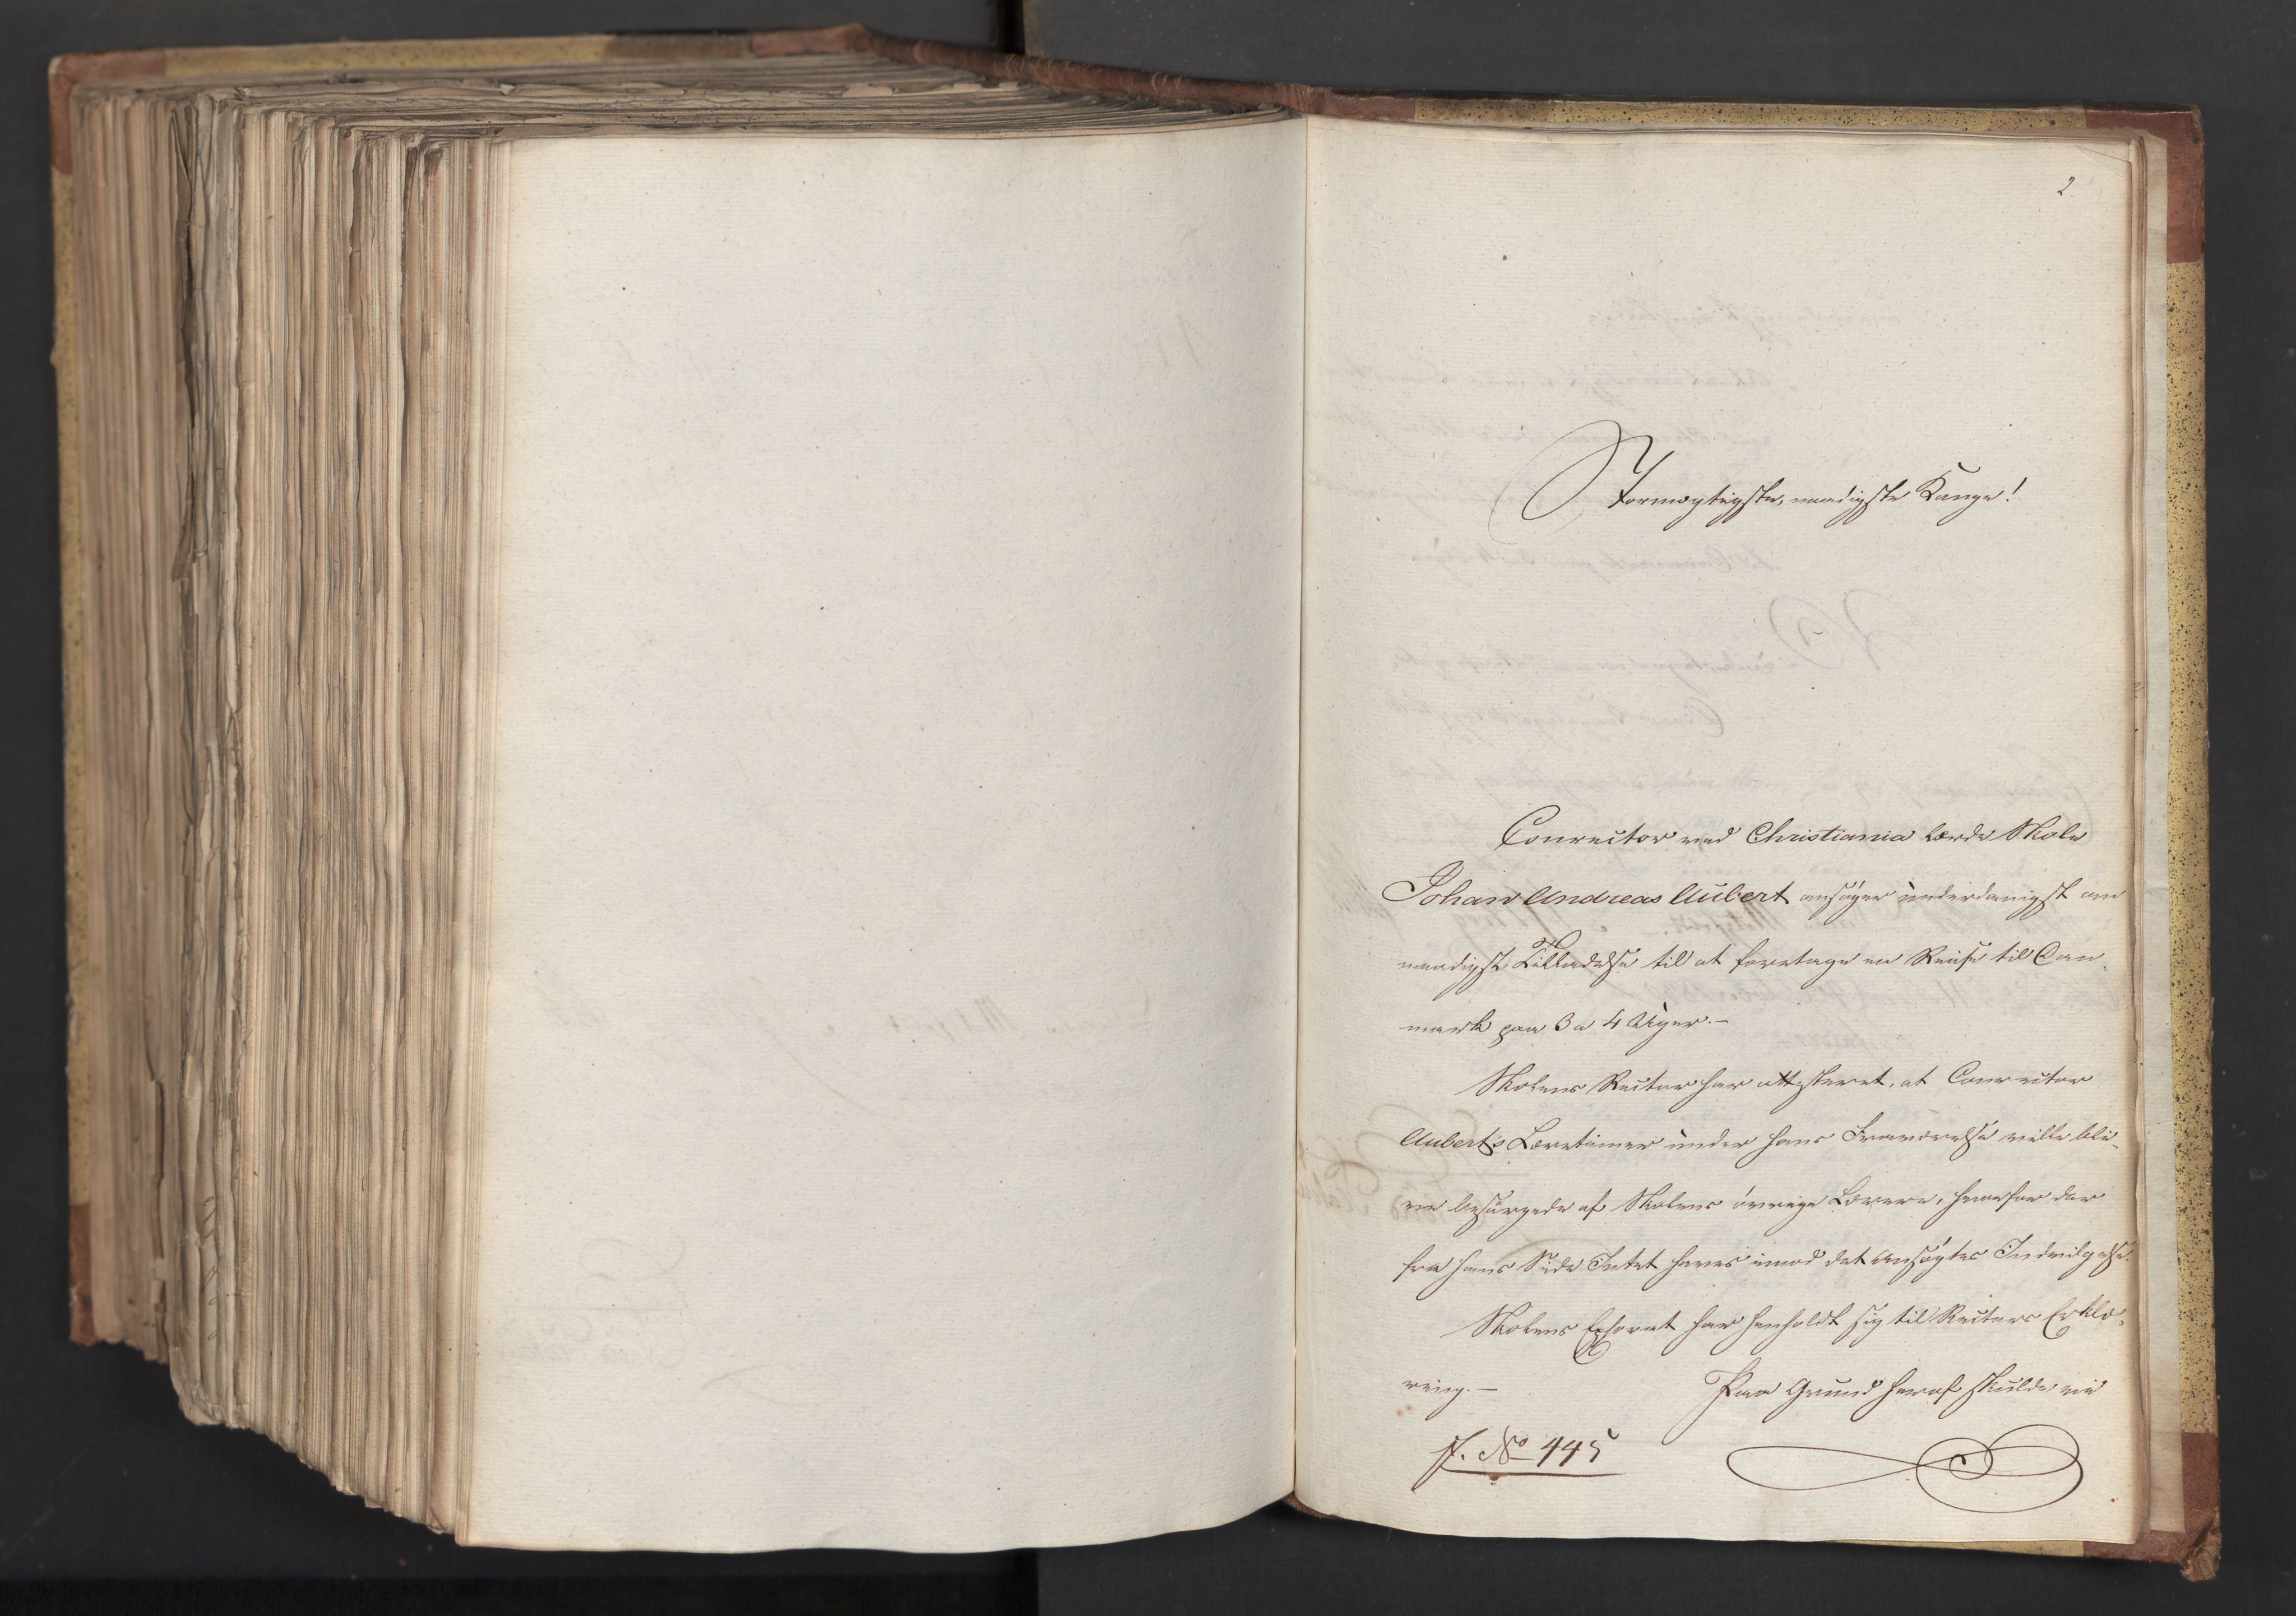 2
Stormægtigste, naadigste Konge!
Conrector ved Christiania lærde Skole
Johan Andreas Aubert ansøger underdanigst om
naadigst Tilladelse til at foretage en Reise til Dan-
mark paa 3 a 4 Uger.-
Skolens Rector har attesteret, at Conrector
Auberts Læretimer under hans Fraværelse ville bli-
ve besørgede af Skolens øvrige Lærere, hvorfor der
fra hans Side Intet haves imod det Ansøgtes Indvilgelse.
Skolens Ephorat har henholdt sig til Rectors Erklæ-
ring.-
Paa Grund heraf skulde vi
No 445